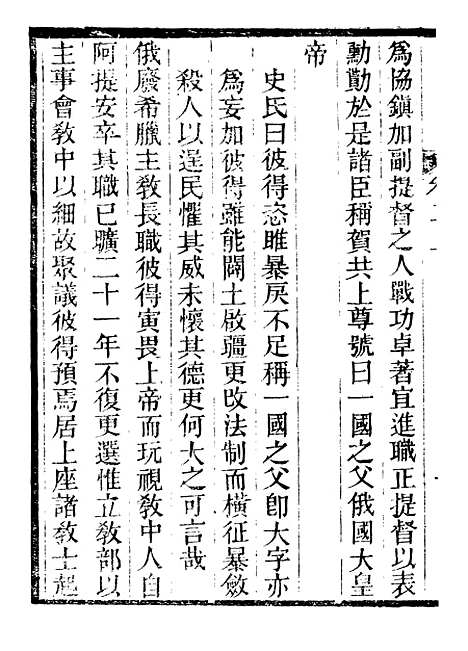 為協鎮加副提督之人戰功卓著宜進職正提督以表
勳勤於是諸臣稱賀共上尊號曰一國之父俄國大皇
帝
史氏曰彼得恣睢暴戾不足稱一國之父卽大字亦
為妄加彼得雖能闢土啟疆更改法制而橫征暴斂
殺人以逞民懼其威未懷其德更何大之可言哉
俄廢希臘主敎長職彼得寅畏上帝而玩視敎中人自
阿提安卒其職已曠二十一年不復更選惟立敎部以
主事會敎中以細故聚議彼得預焉居上座諸敎士起